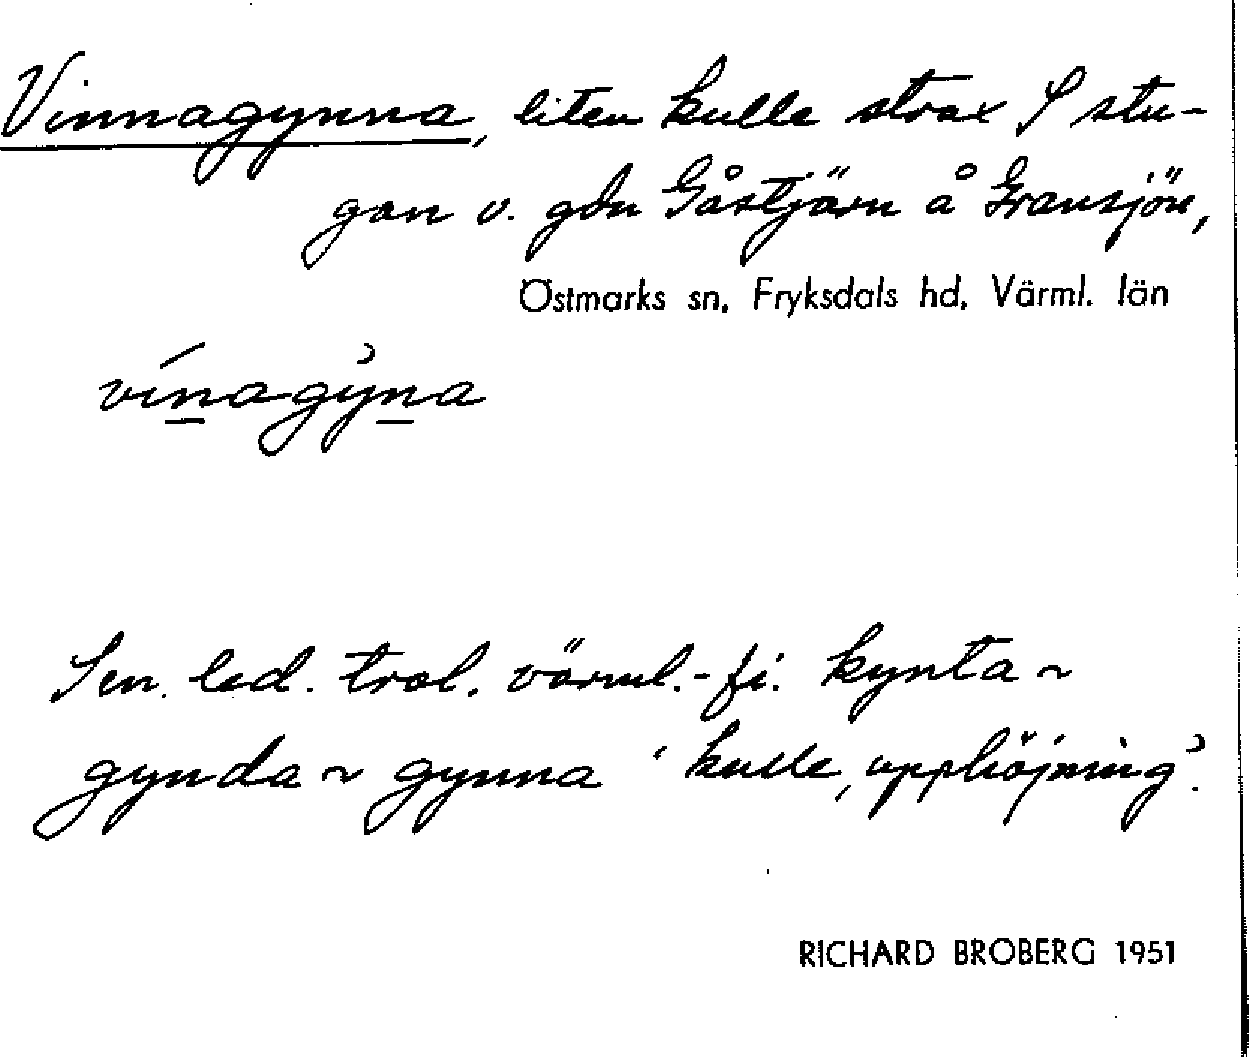 Vinnagynna, liten kulle strax S stu-
gan v. gdn Gåstjärn å Gransjön,
Östmarks sn, Fryksdals hd, Värml. län
vínagỳna
Sen. led. trol. värml.-fi. kynta ~
gynda ~ gynna 'kulle, upphöjning'.
RICHARD BROBERG 1951